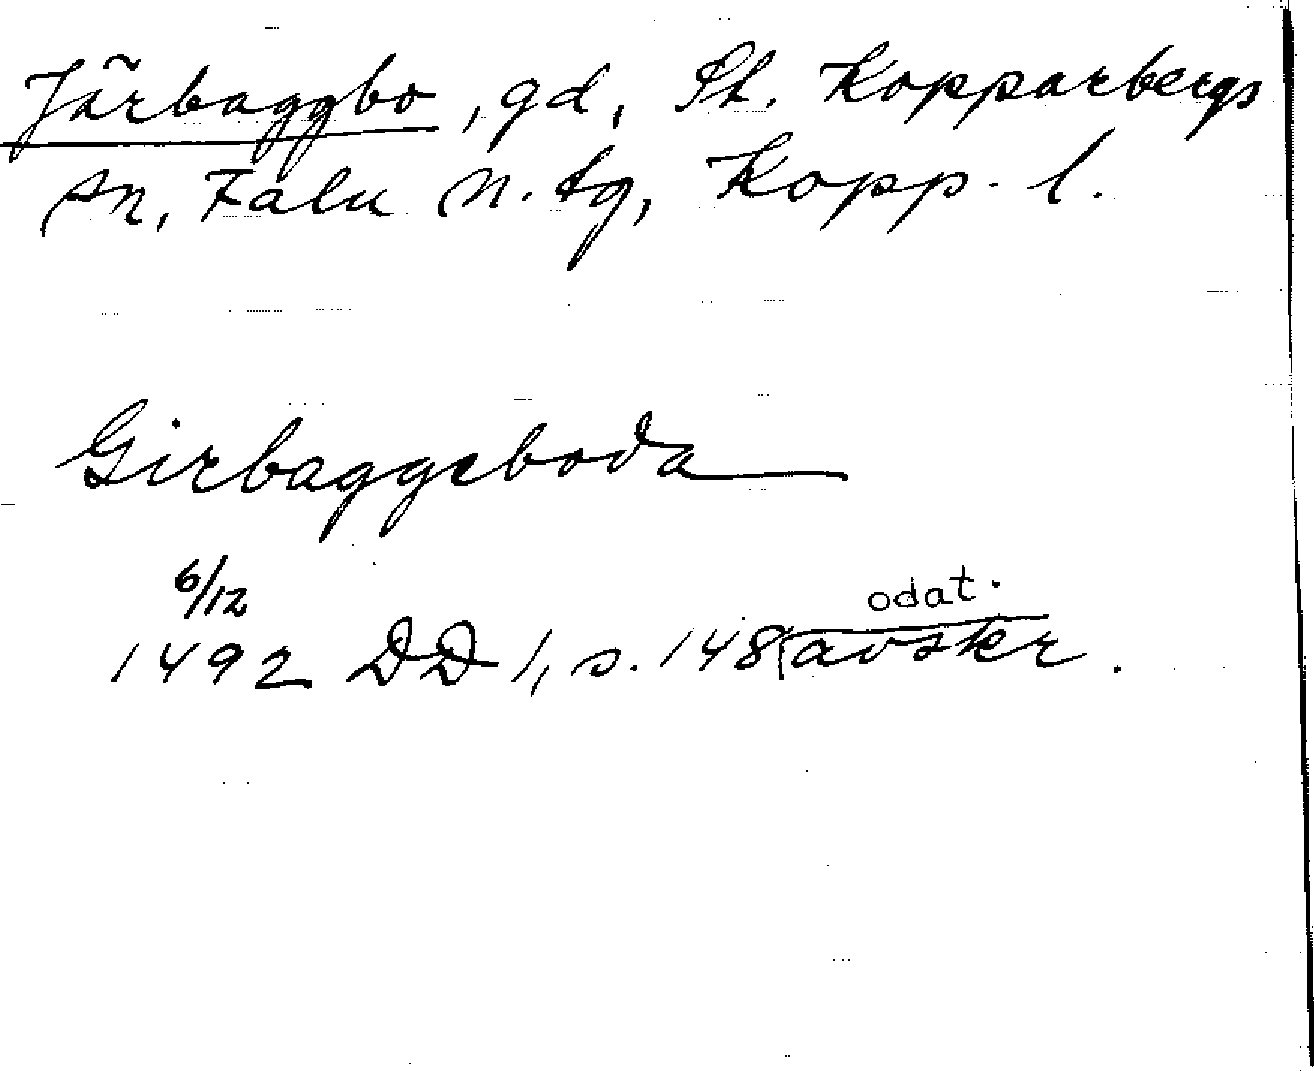 Järbaggbo, gd, St. Kopparbergs
sn, Falu n. tg, Kopp. l.
Girbaggeboda
6/12
odat.
1492 DD 1, s. 148 (avskr.